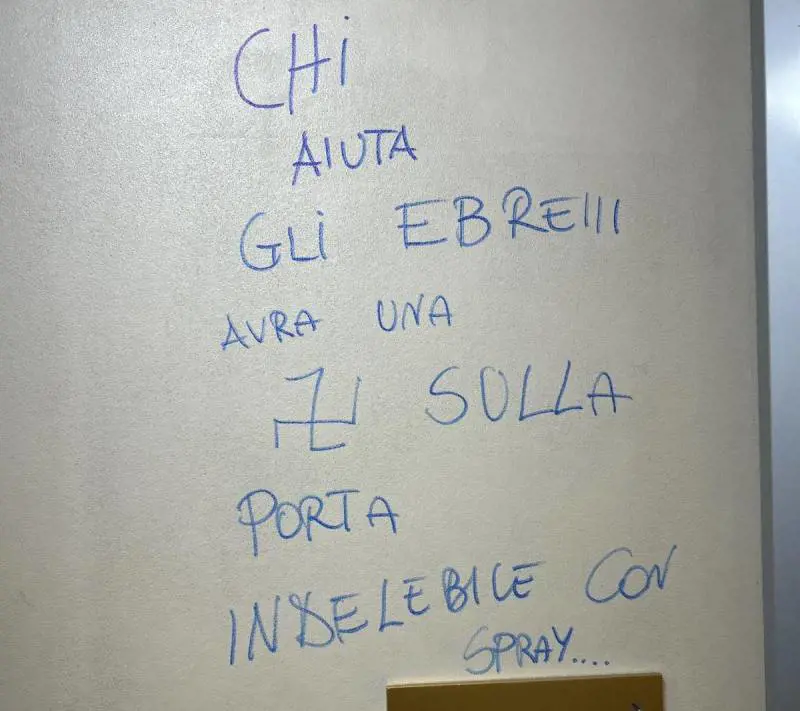 CHi
AIUTA
GLi EBREIII
AVRA UNA
卍 SULLA
PORTA
INDELEBILE CON
SPRAY....